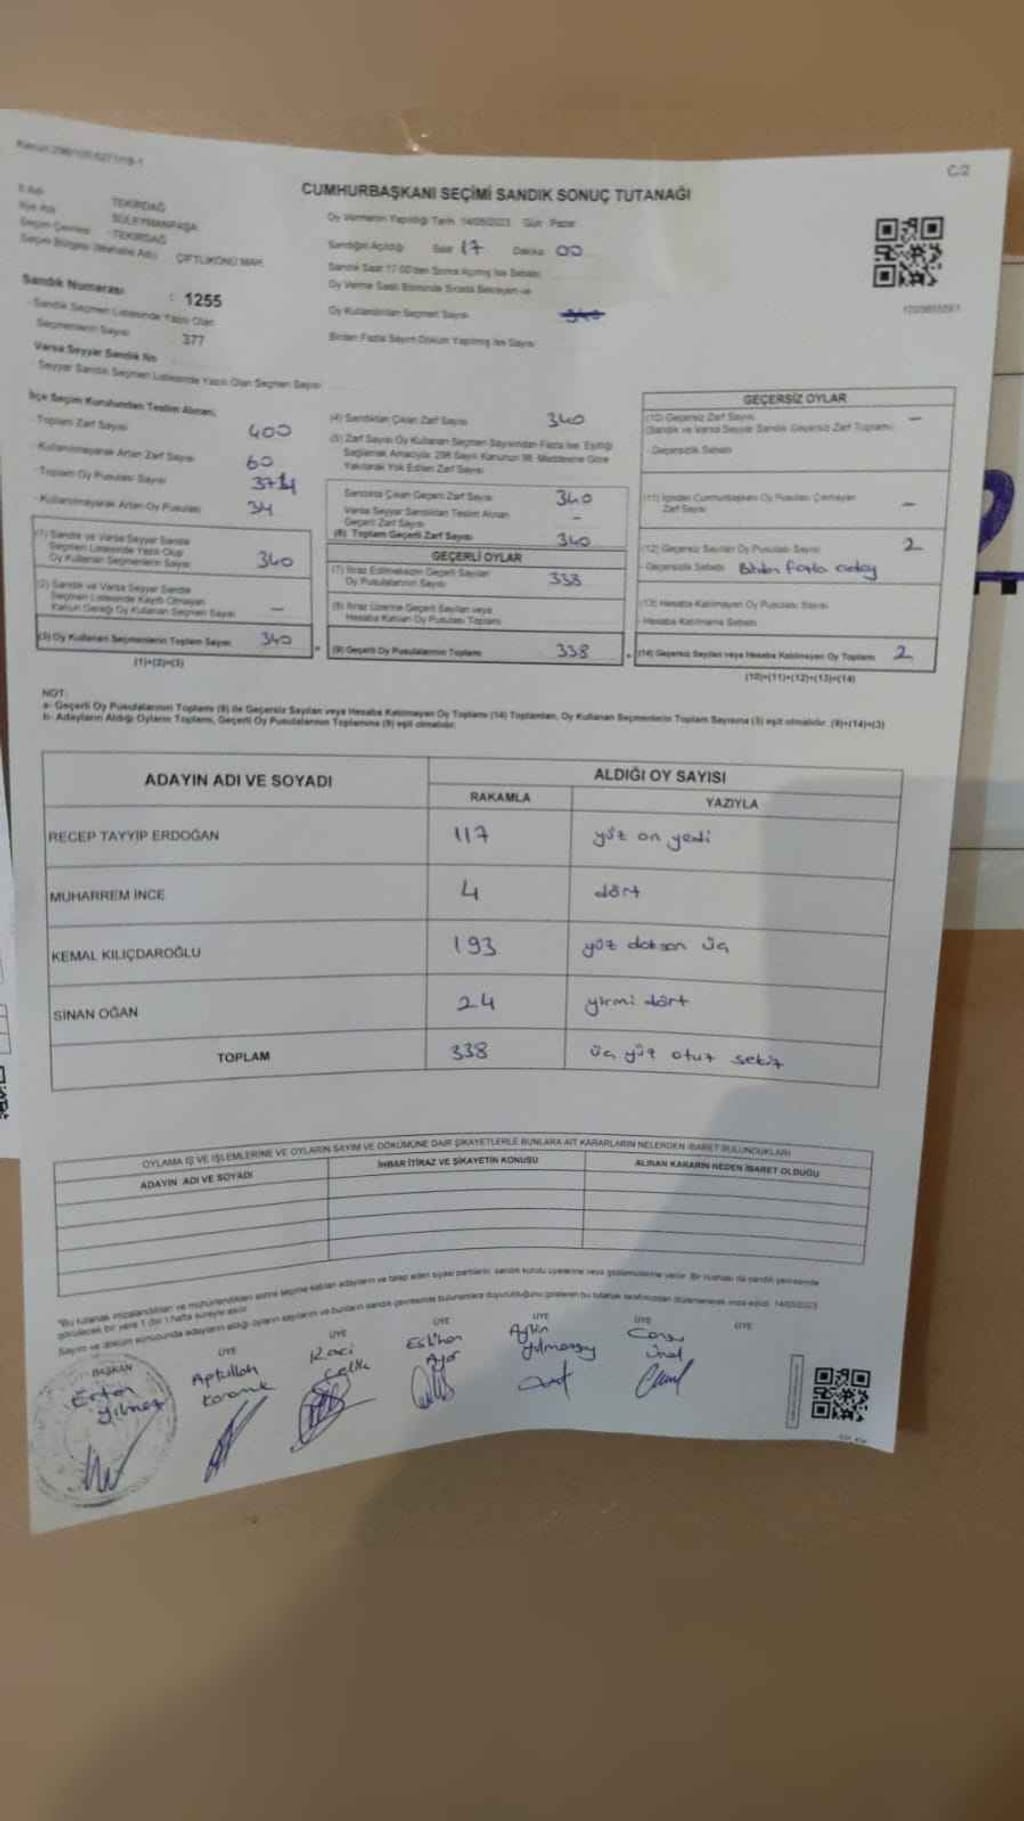 C-2
CUMHURBAŞKANI SEÇİMİ SANDIK SONUÇ TUTANAĞI
İl Adı TEKİRDAĞ
İlçe Adı SÜLEYMANPAŞA
Seçim Çevresi TEKİRDAĞ
Seçim Bölgesi (Mahalle Adı) ÇİFTLİKÖNÜ MAH.
Sandık Numarası : 1255
Sandık Seçmen Listesinde Yazılı Olan
Seçmenlerin Sayısı 377
Varsa Seyyar Sandık No
Seyyar Sandık Seçmen Listesinde Yazılı Olan Seçmen Sayısı
Oy Vermenin Yapıldığı Tarih 14/05/2023 Gün Pazar
Sandığın Açıldığı Saat 17 Dakika 00
Sandık Saat 17:00'den Sonra Açılmış İse Sebebi
Oy Verme Saati Bitiminde Sırada Bekleyen ve
Oy Kullandırılan Seçmen Sayısı 340
Birden Fazla Sayım Döküm Yapılmış İse Sayısı
İlçe Seçim Kurulundan Teslim Alınan,
Toplam Zarf Sayısı 400
Kullanılmayarak Artan Zarf Sayısı 60
Toplam Oy Pusulası Sayısı
Kullanılmayarak Artan Oy Pusulası 34
(1) Sandık ve Varsa Seyyar Sandık
Seçmen Listesinde Yazılı Olup
Oy Kullanan Seçmenlerin Sayısı 340
(2) Sandık ve Varsa Seyyar Sandık
Seçmen Listesinde Kayıtlı Olmayan
Kanun Gereği Oy Kullanan Seçmen Sayısı -
(3) Oy Kullanan Seçmenlerin Toplam Sayısı 340
(1)+(2)=(3)
(4) Sandıktan Çıkan Zarf Sayısı 340
(5) Zarf Sayısı Oy Kullanan Seçmen Sayısından Fazla İse, Eşitliği
Sağlamak Amacıyla 298 Sayılı Kanunun 98. Maddesine Göre
Yakılarak Yok Edilen Zarf Sayısı
Sandıkta Çıkan Geçerli Zarf Sayısı 340
Varsa Seyyar Sandıktan Teslim Alınan
Geçerli Zarf Sayısı -
(6) Toplam Geçerli Zarf Sayısı 340
GEÇERLİ OYLAR
(7) İtiraz Edilmeksizin Geçerli Sayılan
Oy Pusulalarının Sayısı 338
(8) İtiraz Üzerine Geçerli Sayılan veya
Hesaba Katılan Oy Pusulası Toplamı
(9) Geçerli Oy Pusulalarının Toplamı 338
GEÇERSİZ OYLAR
(10) Geçersiz Zarf Sayısı -
(Sandık ve Varsa Seyyar Sandık Geçersiz Zarf Toplamı)
Geçersizlik Sebebi
(11) İçinden Cumhurbaşkanı Oy Pusulası Çıkmayan
Zarf Sayısı -
(12) Geçersiz Sayılan Oy Pusulası Sayısı 2
Geçersizlik Sebebi Birden fazla aday
(13) Hesaba Katılmayan Oy Pusulası Sayısı
Hesaba Katılmama Sebebi
(14) Geçersiz Sayılan veya Hesaba Katılmayan Oy Toplamı 2
(10)+(11)+(12)+(13)=(14)
NOT:
a- Geçerli Oy Pusulalarının Toplamı (9) ile Geçersiz Sayılan veya Hesaba Katılmayan Oy Toplamı (14) Toplamları, Oy Kullanan Seçmenlerin Toplam Sayısına (3) eşit olmalıdır. (9)+(14)=(3)
b- Adayların Aldığı Oyların Toplamı, Geçerli Oy Pusulalarının Toplamına (9) eşit olmalıdır.
ADAYIN ADI VE SOYADI
ALDIĞI OY SAYISI
RAKAMLA YAZIYLA
RECEP TAYYİP ERDOĞAN 117 yüz on yedi
MUHARREM İNCE 4 dört
KEMAL KILIÇDAROĞLU 193 yüz doksan üç
SİNAN OĞAN 24 yirmi dört
TOPLAM 338 üç yüz otuz sekiz
OYLAMA İŞ VE İŞLEMLERİNE VE OYLARIN SAYIM VE DÖKÜMÜNE DAİR ŞİKAYETLERLE BUNLARA AİT KARARLARIN NELERDEN İBARET BULUNDUKLARI
ADAYIN ADI VE SOYADI
İHBAR İTİRAZ VE ŞİKAYETİN KONUSU
ALINAN KARARIN NEDEN İBARET OLDUĞU
BAŞKAN ÜYE ÜYE ÜYE ÜYE ÜYE ÜYE
Yılmaz
Aptullah
Raci Çelik
Aylin
Ünal